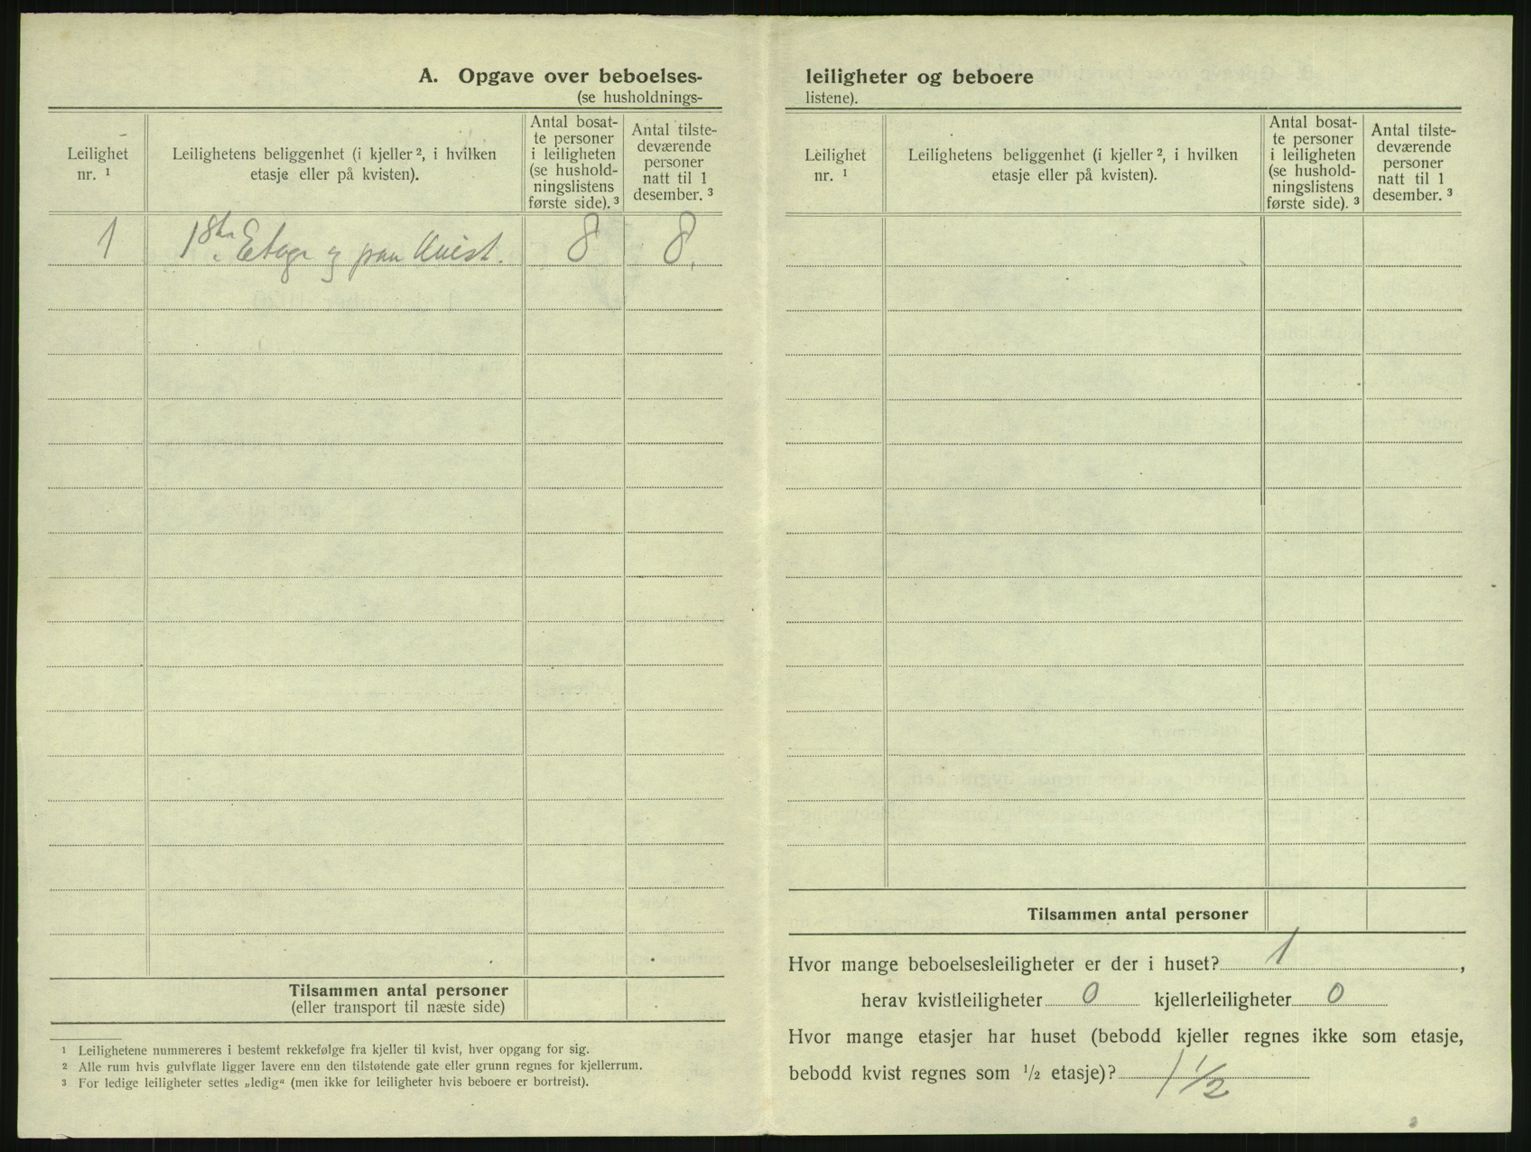 A. Opgave over beboelses-
(se husholdnings-
Leilighet
nr. ¹
Leilighetens beliggenhet (i kjeller ², i hvilken
etasje eller på kvisten).
Antal bosat-
te personer
i leiligheten
(se hushold-
ningslistens
første side). ³
Antal tilste-
deværende
personer
natt til 1
desember. ³
1 Etage og paa Kvist. 8 8.
Tilsammen antal personer
(eller transport til næste side)
¹ Leilighetene nummereres i bestemt rekkefølge fra kjeller til kvist, hver opgang for sig.
² Alle rum hvis gulvflate ligger lavere enn den tilstøtende gate eller grunn regnes for kjellerrum.
³ For ledige leiligheter settes „ledig“ (men ikke for leiligheter hvis beboere er bortreist).
leiligheter og beboere
listene).
Leilighet
nr. ¹
Leilighetens beliggenhet (i kjeller ², i hvilken
etasje eller på kvisten).
Antal bosat-
te personer
i leiligheten
(se hushold-
ningslistens
første side). ³
Antal tilste-
deværende
personer
natt til 1
desember. ³
Tilsammen antal personer
Hvor mange beboelsesleiligheter er der i huset? 1,
herav kvistleiligheter 0 kjellerleiligheter 0
Hvor mange etasjer har huset (bebodd kjeller regnes ikke som etasje,
bebodd kvist regnes som ½ etasje)? 1 ½